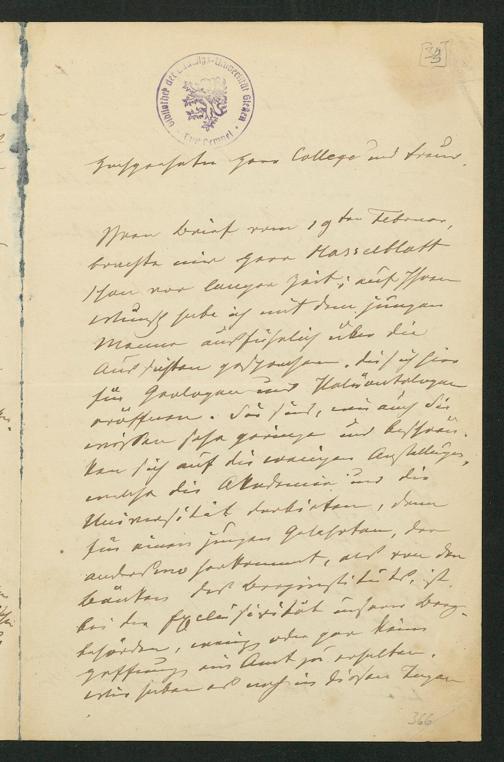 33
Bibliothek der Ludwigs-Universität Giessen
Hochgeehrter Herr College und Freund.
Ihren Brief vom 19ten Februar,
brachte mir Herr Hasselblatt
schon vor langer Zeit; auf Ihren
Wunsch habe ich mit dem jungen
Manne ausführlich über die
Aussichten gesprochen, die sich hier
für Geologen und Paläontologen
eröffnen. Sie sind, wie auch Sie
wissen sehr geringe und beschrän-
ken sich auf die wenigen Anstellungen,
welche die Akademie und die
Universität darbieten, denn
für einen jungen Gelehrten, der
anderswo herkommt, als von den
Bänken des Berginstituts, ist
bei der Exclusivität unserer Berg-
behörden, wenig oder gar keine
Hoffnung ein Amt zu erhalten.
Wir haben es noch in diesen Tagen
366